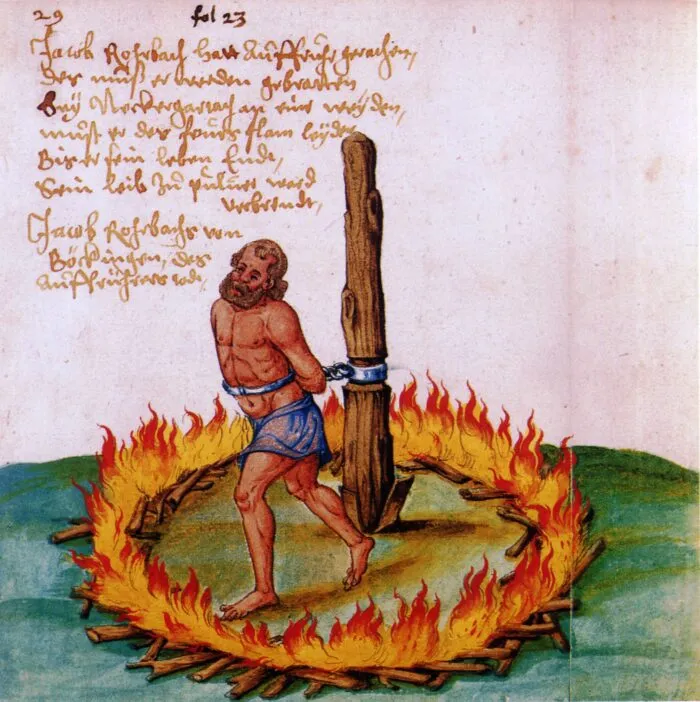 29 fol 23
Jacob Rohrbach hatt Auffrhur gerachen,
des muſs er werden gebratten
Bey Neckergartach an eine weyden,
muſt er des feurs flam leyden
Bis er sein leben Ende,
Sein leib zu puluer ward
verbrendt,
Jacob Rohrbachs von
Böckingen, des
Auffrührers tod,